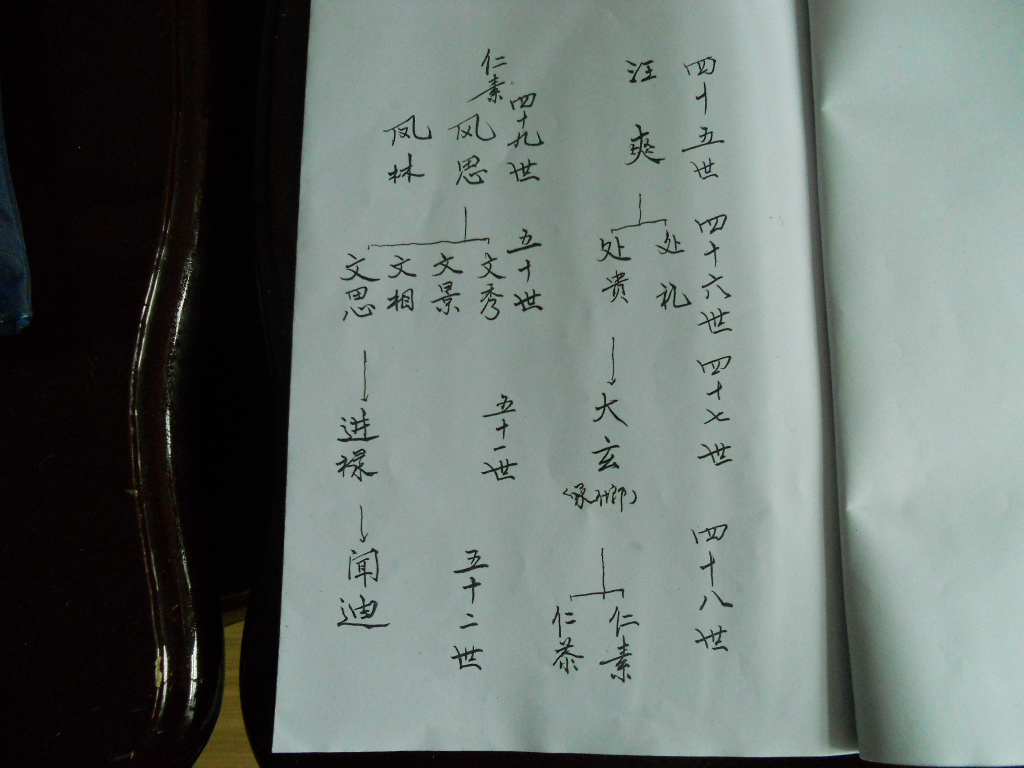 四十五世
汪爽
四十六世
处礼
处贵
四十七世
大玄
四十八世
仁素
仁恭
仁素
四十九世
凤思
凤林
五十世
文秀
文景
文相
文思
五十一世
进禄
五十二世
闻迪